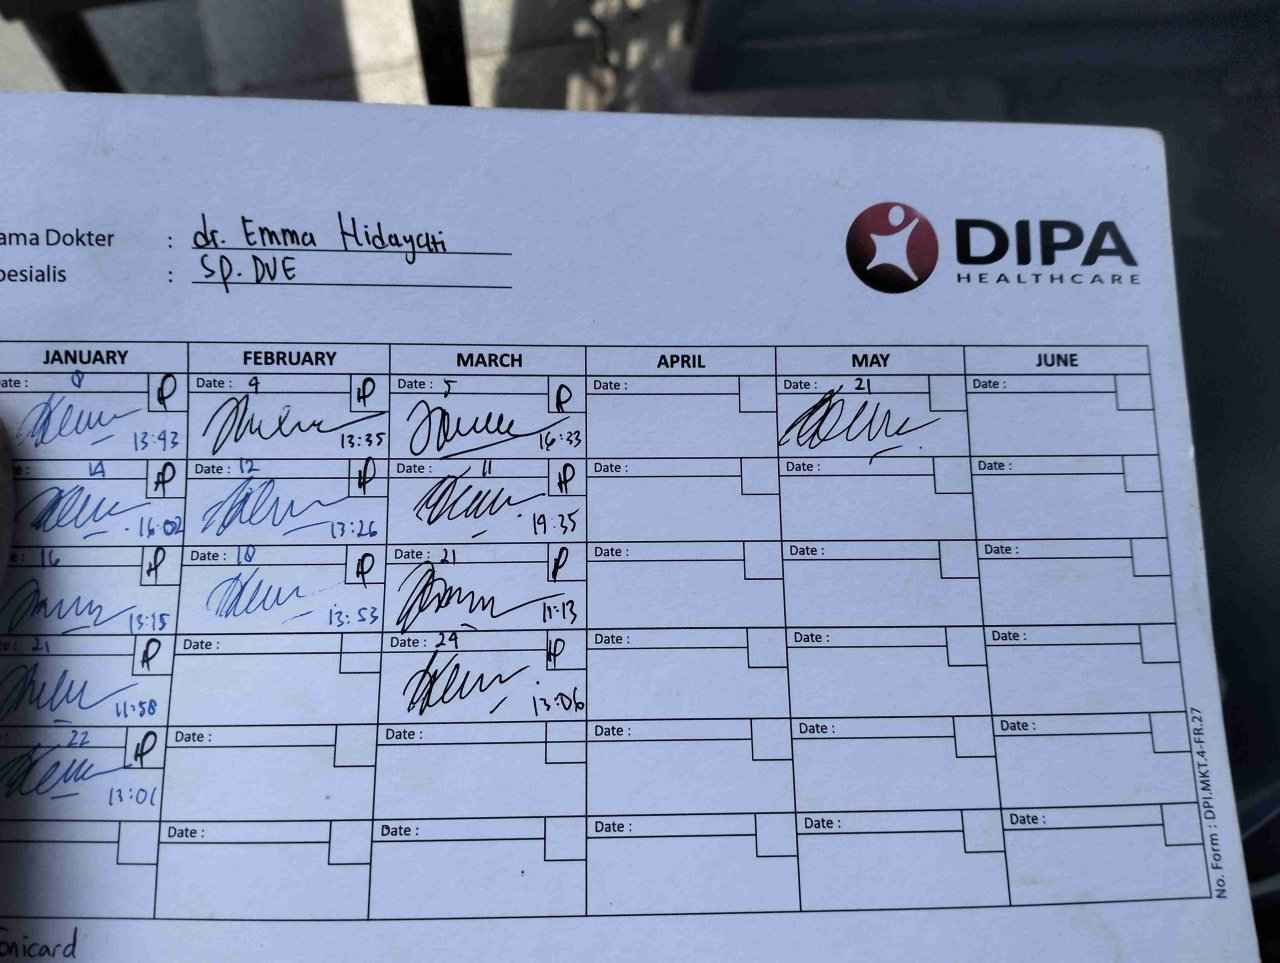 ama Dokter : dr. Emma Hidayati
pesialis : Sp. DVE
DIPA
HEALTHCARE
JANUARY FEBRUARY MARCH APRIL MAY JUNE
ate : 8 Date : 4 Date : 5 Date : Date : 21 Date :
13:43 13:35 16:33
e: 14 Date : 12 Date : 11 Date : Date : Date :
16:02 13:26 19.35
e: 16 Date : 18 Date : 21 Date : Date : Date :
13:15 13:53 11:13
e: 21 Date : Date : 24 Date : Date : Date :
11:58 13:06
22 Date : Date : Date : Date : Date :
13:01
Date : Date : Date : Date : Date :
No. Form : DPI.MKT.4-FR.27
onicard